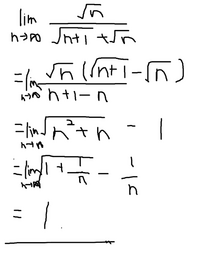 lim n→∞ √n / (√(n+1) + √n)
= lim n→∞ √n (√(n+1) − √n) / (n+1−n)
= lim n→∞ √(n²+n) − 1
= lim n→∞ √(1 + 1/n) − 1/n
= 1